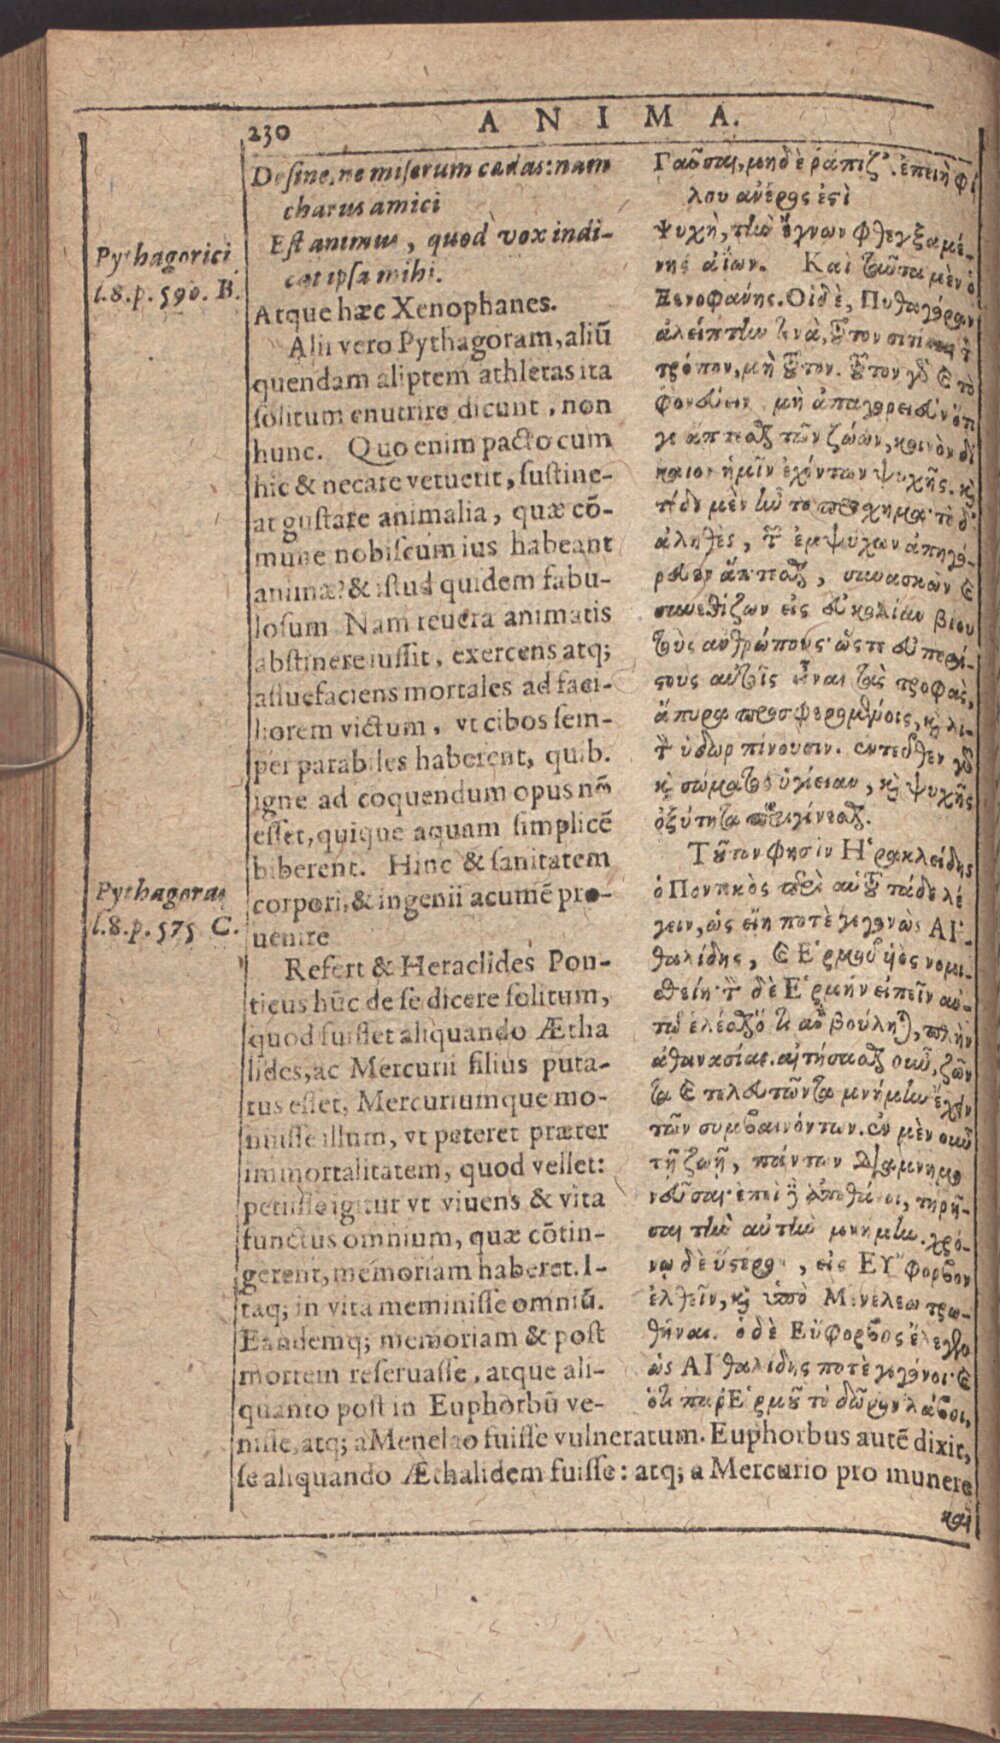 230
ANIMA.
Pythagorici
l.8.p.590.B.
Pythagoras
l.8.p.575 C.
Desine, ne miserum cædas: nam
charus amici
Est animus, quod vox indi-
cat ipsa mihi.
Atque hæc Xenophanes.
Alii vero Pythagoram, aliũ
quendam aliptem athletas ita
solitum enutrire dicunt, non
hunc. Quo enim pacto cum
hic & necare vetuerit, sustine-
at gustare animalia, quæ cõ-
mune nobiscum ius habeant
animæ? & istud quidem fabu-
losum Nam reuera animatis
abstinere iussit, exercens atq;
assuefaciens mortales ad faci-
liorem victum, vt cibos sem-
per parabiles haberent, quib.
igne ad coquendum opus nõ
esset, quique aquam simplicẽ
biberent. Hinc & sanitatem
corpori, & ingenii acumẽ pro-
uenire
Refert & Heraclides Pon-
ticus hũc de se dicere solitum,
quod fuisset aliquando Ætha
lides, ac Mercurii filius puta-
tus esset, Mercuriumque mo-
nuisse illum, vt peteret præter
immortalitatem, quod vellet:
petiisse igitur vt viuens & vita
functus omnium, quæ cõtin-
gerent, memoriam haberet. I-
taq; in vita meminisse omniũ.
Eandemq; memoriam & post
mortem reseruasse, atque ali-
quanto post in Euphorbũ ve-
nisse, atq; a Menelao fuisse vulneratum. Euphorbus autẽ dixit,
se aliquando Æthalidem fuisse: atq; a Mercurio pro munere
Παῦσαι, μηδὲ ῥάπιζ'. ἐπειὴ φί
λου ἀνέρος ἐστὶ
Ψυχὴ, τὴν ἔγνων φθεγξαμέ-
νης ἀΐων. Καὶ ταῦτα μὲν ὁ
Ξενοφάνης. Οἱ δὲ, Πυθαγόραν
ἀλείπτην τινὰ, τοῦτον σιτίσαι τὸν
τρόπον, μὴ τοῦτον. τοῦτον γὰρ καὶ τὸ
φονεύειν μὴ ἀπαγορεύειν ὅτι
γε ἅπτεσθαι τῶν ζώων, κοινὸν δί
καιον ἡμῖν ἐχόντων ψυχῆς. καὶ
τόδε μὲν ἦν τὸ πρόσχημα· τὸ δ'
ἀληθὲς, τῶν ἐμψύχων ἀπηγό-
ρευεν ἅπτεσθαι, συνασκῶν καὶ
συνεθίζων εἰς εὐκολίαν βίου
τοὺς ἀνθρώπους· ὥστε εὐπορί-
στους αὐτοῖς εἶναι τὰς τροφὰς,
ἄπυρα προσφερομένοις, καὶ λι-
τὸν ὕδωρ πίνουσιν. ἐντεῦθεν γὰρ
καὶ σώματος ὑγίειαν, καὶ ψυχῆς
ὀξύτητα περιγίνεσθαι.
Τοῦτον φησὶν Ἡρακλείδης
ὁ Ποντικὸς περὶ αὑτοῦ τάδε λέ
γειν, ὡς εἴη ποτὲ γεγονὼς Αἰ-
θαλίδης, καὶ Ἑρμοῦ υἱὸς νομι-
σθείη· τὸν δὲ Ἑρμῆν εἰπεῖν αὐ-
τῷ ἑλέσθαι ὅ τι ἂν βούληται, πλὴν
ἀθανασίας. αἰτήσασθαι οὖν, ζῶν
τα καὶ τελευτῶντα μνήμην ἔχειν
τῶν συμβαινόντων. ἐν μὲν οὖν
τῇ ζωῇ, πάντων διαμνημο
νεῦσαι· ἐπεὶ δὲ ἀποθάνοι, τηρῆ-
σαι τὴν αὐτὴν μνήμην. χρό-
νῳ δὲ ὕστερον, εἰς Εὔφορβον
ἐλθεῖν, καὶ ὑπὸ Μενέλεω τρω-
θῆναι. ὁ δὲ Εὔφορβος ἔλεγεν
ὡς Αἰθαλίδης ποτὲ γεγόνοι· καὶ
ὅτι παρ' Ἑρμοῦ τὸ δῶρον λάβοι,
καὶ